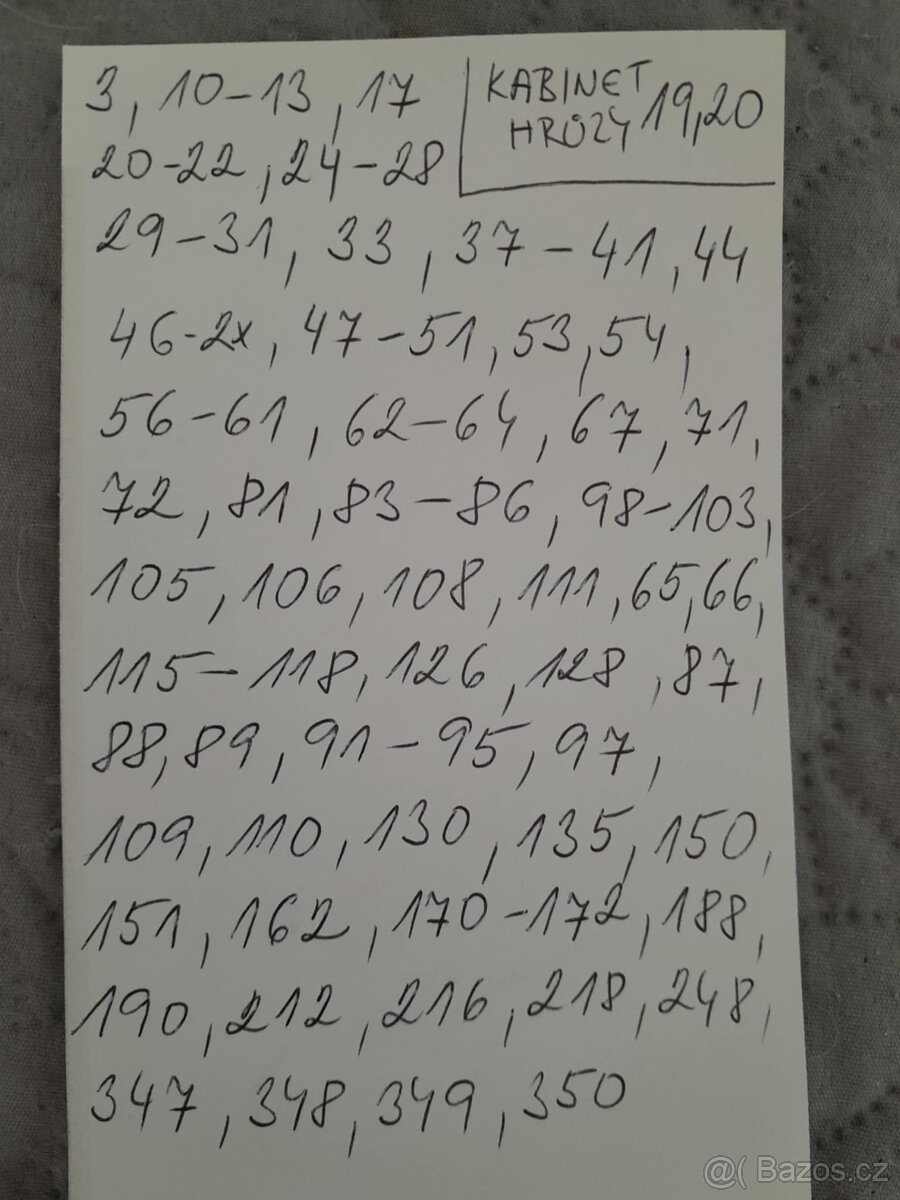 3, 10-13, 17
KABINET
HRŮZY 19,20
20-22, 24-28
29-31, 33, 37-41, 44
46-2x, 47-51, 53, 54,
56-61, 62-64, 67, 71,
72, 81, 83-86, 98-103,
105, 106, 108, 111, 65, 66,
115-118, 126, 128, 87,
88, 89, 91-95, 97,
109, 110, 130, 135, 150,
151, 162, 170-172, 188,
190, 212, 216, 218, 248,
347, 348, 349, 350
@( Bazos.cz